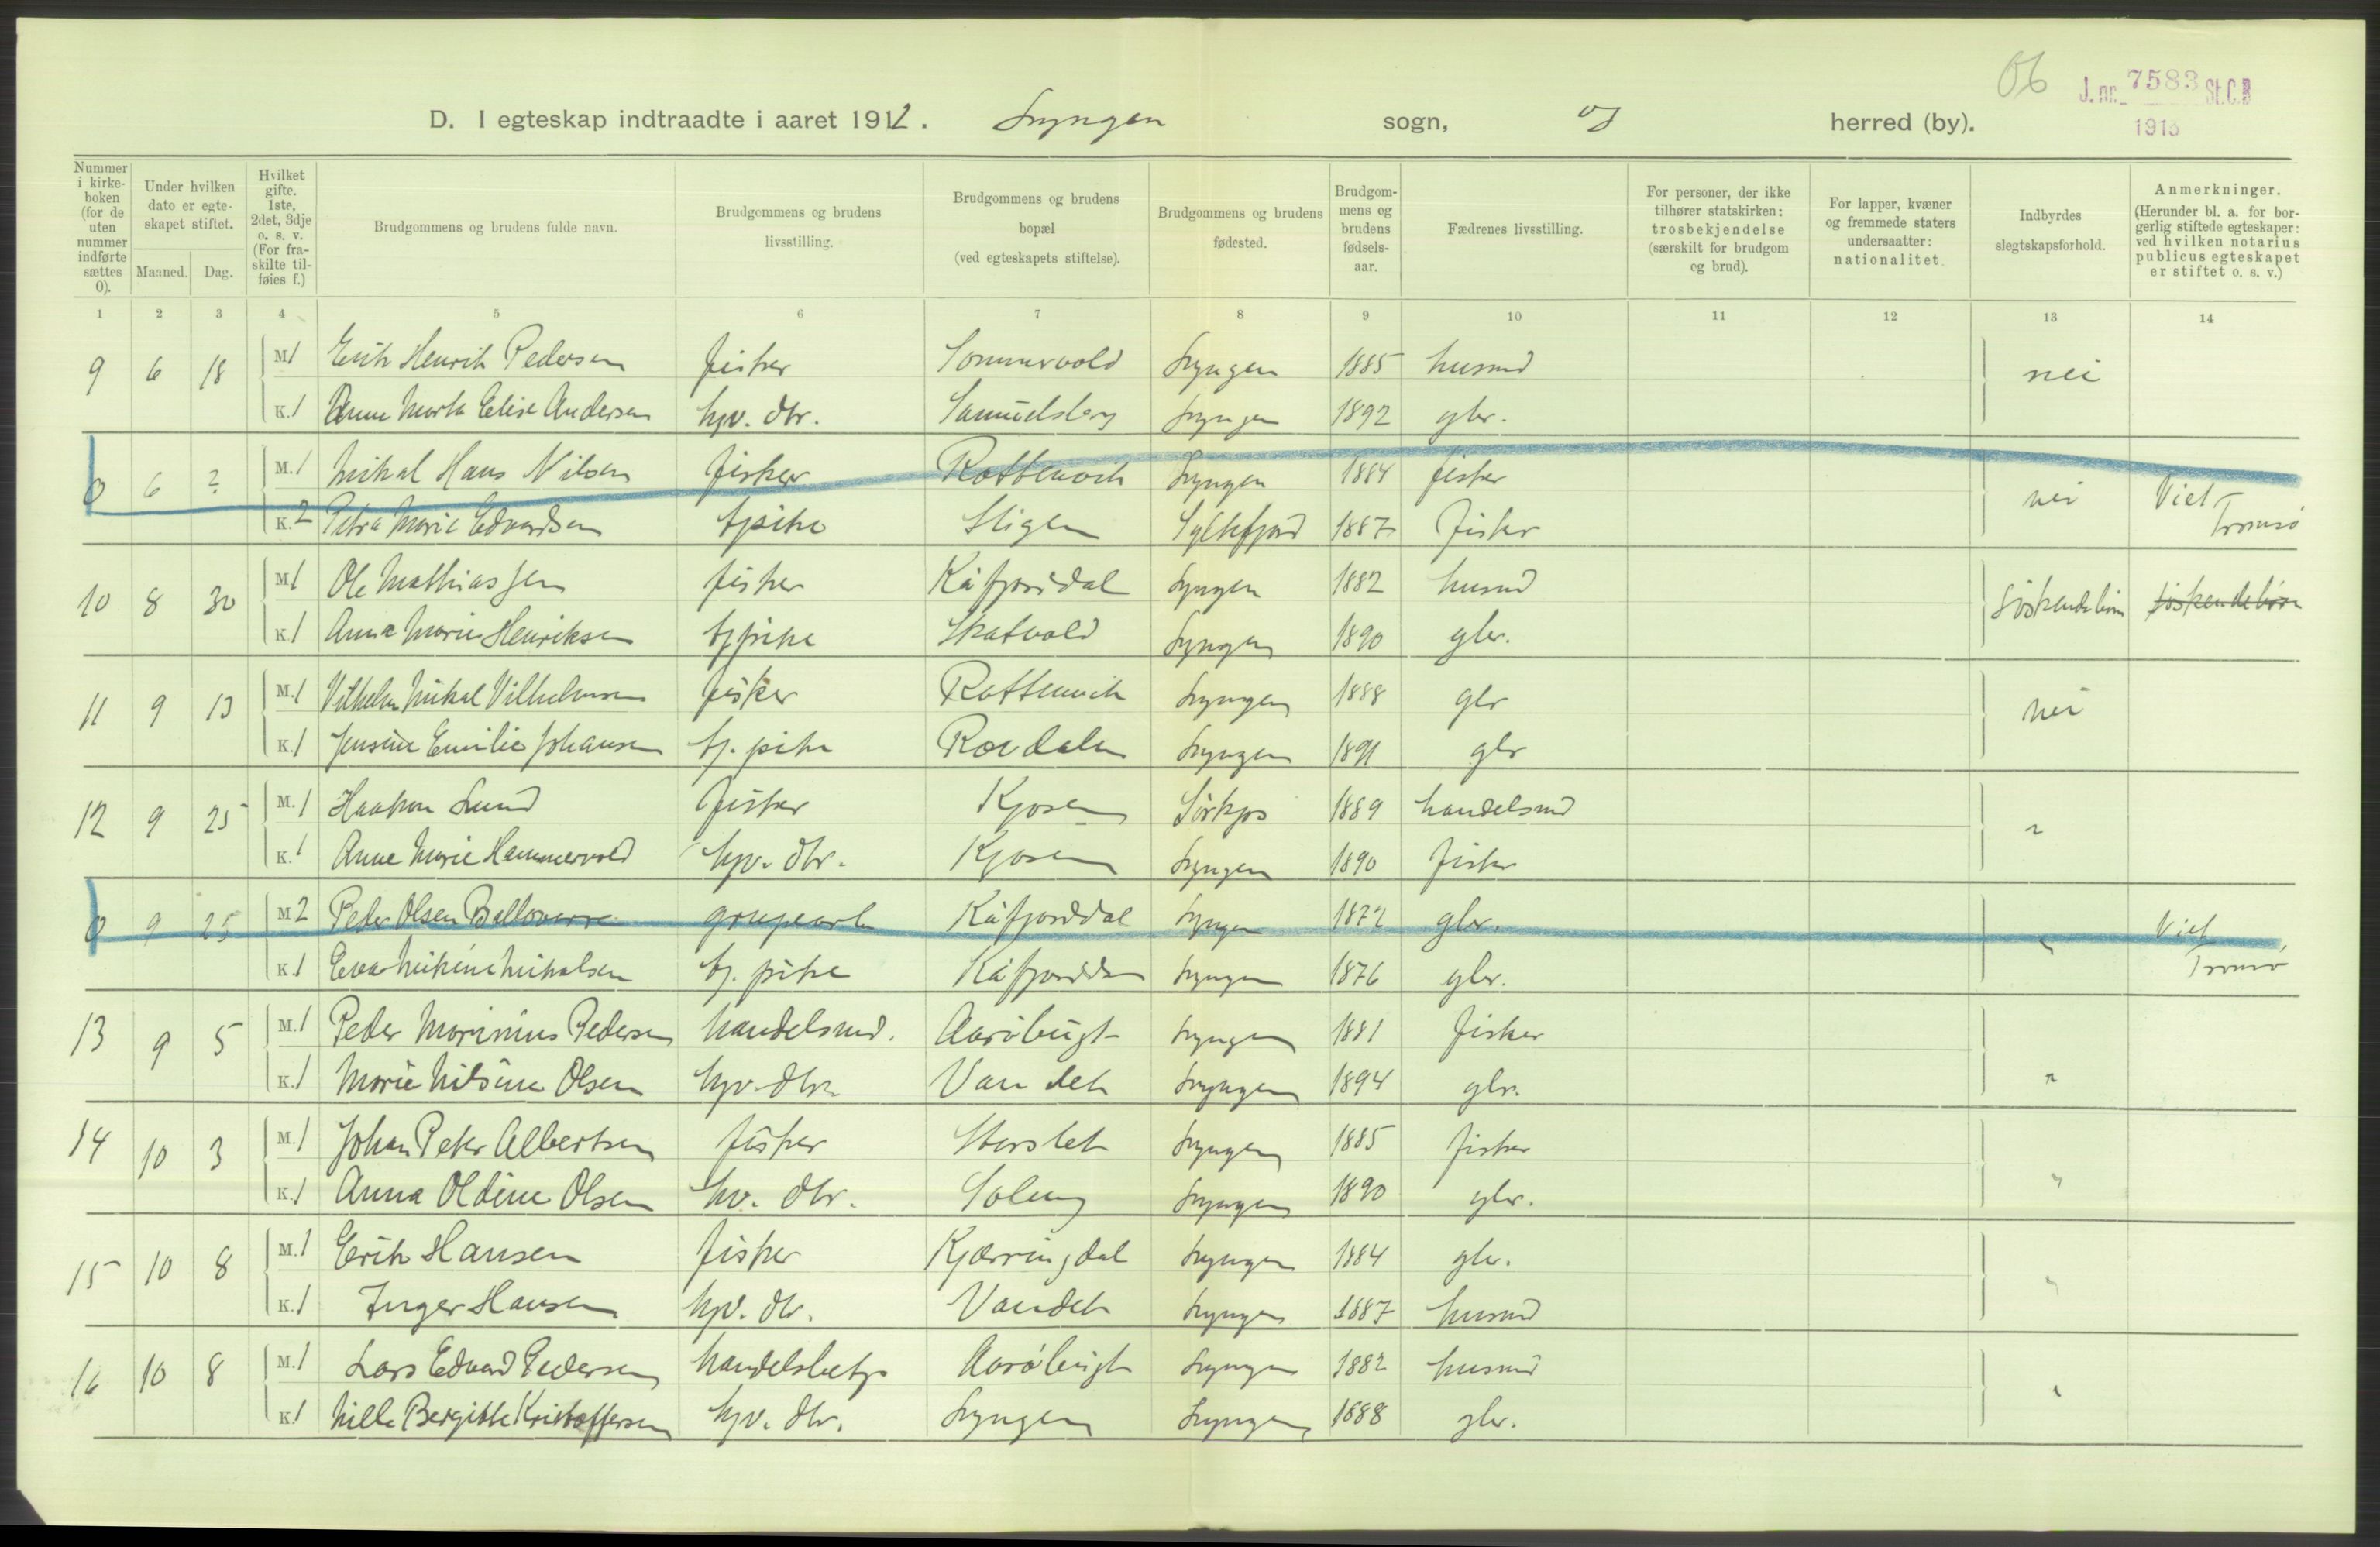 06 J. nr. 7583 St.C.B
1913
D. I egteskap indtraadte i aaret 1912. Lyngen sogn, og herred (by).
Nummer i kirke-boken (for de uten nummer indførte sættes 0).
Under hvilken dato er egte-skapet stiftet.
Maaned. Dag.
Hvilket gifte. 1ste, 2det, 3dje o. s. v. (For fra-skilte til-føies f.)
Brudgommens og brudens fulde navn.
Brudgommens og brudens livsstilling.
Brudgommens og brudens bopæl (ved egteskapets stiftelse).
Brudgommens og brudens fødested.
Brudgom-mens og brudens fødsels-aar.
Fædrenes livsstilling.
For personer, der ikke tilhører statskirken: trosbekjendelse (særskilt for brudgom og brud).
For lapper, kvæner og fremmede staters undersaatter: nationalitet.
Indbyrdes slegtskapsforhold.
Anmerkninger. (Herunder bl. a. for bor-gerlig stiftede egteskaper: ved hvilken notarius publicus egteskapet er stiftet o. s. v.)
1 2 3 4 5 6 7 8 9 10 11 12 13 14
9 6 18 M. 1 Erik Henrik Pedersen fisker Sommervold Lyngen 1885 husmd nei
K. 1 Anne Marta Elise Andersen hjv. dtr. Samuelsberg Lyngen 1892 gbr.
0 6 ? M. 1 Mikal Hans Nilsen fisker Rottenvik Lyngen 1884 fisker nei Viet Tromsø
K. 2 Petra Marie Edvardsen tjpike Stigen Syltefjord 1887 fisker
10 8 30 M. 1 Ole Mathiassen fisker Kåfjorddal Lyngen 1882 husmd søskendebørn søskendebørn
K. 1 Anna Marie Henriksen tjpike Skatvold Lyngen 1890 gbr.
11 9 13 M. 1 Vilhelm Mikal Vilhelmsen fisker Rottenvik Lyngen 1888 gbr nei
K. 1 Jensine Emilie Johansen tj. pike Roedalen Lyngen 1891 gbr
12 9 25 M. 1 Haakon Lund fisker Kjosen Sørkjos 1889 handelsmd "
K. 1 Anne Marie Hammervold hjv. dtr. Kjosen Lyngen 1890 fisker
0 9 25 M. 2 Peder Olsen Ballovarre grupearb Kåfjorddal Lyngen 1872 gbr. " Viet Tromsø
K. 1 Eva Mikine Mikalsen tj. pike Kåfjorddal Lyngen 1876 gbr.
13 9 5 M. 1 Peder Marinius Pedersen handelsmd. Aarøbugt Lyngen 1881 fisker "
K. 1 Marie Nilsine Olsen hjv. dtr. Vandet Lyngen 1894 gbr.
14 10 3 M. 1 Johan Peter Albertsen fisker Storslet Lyngen 1885 fisker "
K. 1 Anna Oldine Olsen hv. dtr. Soleng Lyngen 1890 gbr.
15 10 8 M. 1 Erik Hansen fisker Kjærringdal Lyngen 1884 gbr. "
K. 1 Inger Hansen hjv. dtr. Vandet Lyngen 1887 husmd
16 10 8 M. 1 Lars Edvard Pedersen handelsbetj. Aarøbugt Lyngen 1882 husmd "
K. 1 Nille Bergitte Kristoffersen hjv. dtr. Lyngen Lyngen 1888 gbr.